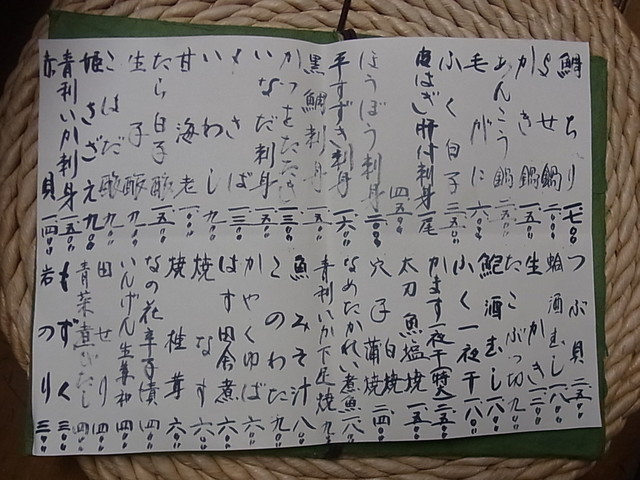 鯛ちり 一七〇〇
よせ鍋 一五〇〇
かき鍋 二〇〇〇
あんこう鍋 二五〇〇
毛がに 一六〇〇
ふく白子 三五〇〇
皮はぎ肝付刺身一尾 四五〇〇
ほうぼう刺身 二〇〇〇
平すずき刺身 一六〇〇
黒鯛刺身 一五〇〇
かつをたたき 一三〇〇
いなだ刺身 一五〇〇
〆さば 一三〇〇
いわし 九〇〇
甘海老 一二〇〇
たら白子酸 一五〇〇
生子酸 九〇〇
こはだ酸 九〇〇
姫さざえ 九〇〇
青利いか刺身 一五〇〇
赤貝 一四〇〇
つぶ貝 二五〇〇
蛤酒むし 一八〇〇
生かき 一三〇〇
たこぶつ切 九〇〇
鮑酒むし 一八〇〇
ふく一夜干 一八〇〇
かます一夜干(特大) 二五〇〇
太刀魚塩焼 一五〇〇
穴子 白焼 蒲焼 二四〇〇
なめたかれい煮魚 一八〇〇
青利いか下足焼 九〇〇
魚みそ汁 八〇〇
このわた 九〇〇
かやくゆば 六〇〇
はす田舎煮 六〇〇
焼なす 六〇〇
焼椎茸 六〇〇
なの花辛子漬 四〇〇
いんげん生姜和 四〇〇
田せり 四〇〇
青菜煮びたし 四〇〇
もずく 三〇〇
岩のり 三〇〇